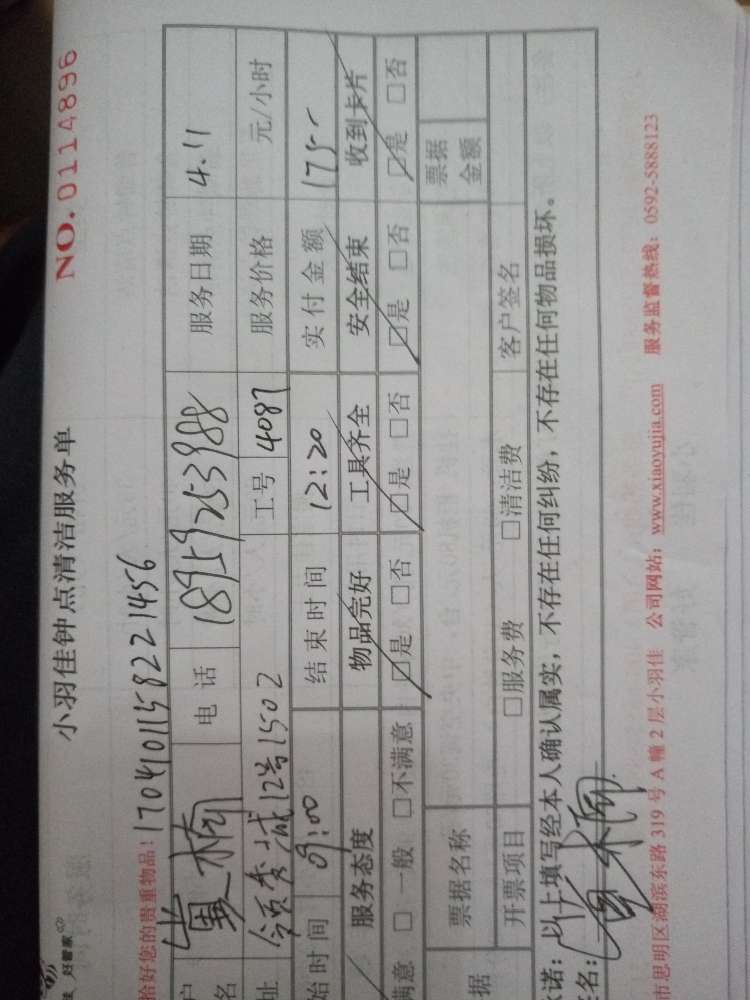 好管家
小羽佳钟点清洁服务单
NO. 0114896
恰好您的贵重物品! 1704101158221456
黄楠 电话 18959253988 服务日期 4.11
址 领秀城12号1502 工号 4087 服务价格 元/小时
始时间 09:00 结束时间 12:20 实付金额 175
服务态度 物品完好 工具齐全 安全结束 收到卡片
满意 □一般 □不满意 □是 □否 □是 □否 □是 □否 □是 □否
据 票据名称 票据金额
开票项目 □服务费 □清洁费 客户签名
诺: 以上填写经本人确认属实, 不存在任何纠纷, 不存在任何物品损坏。
名: 黄楠
市思明区湖滨东路 319 号 A 幢 2 层小羽佳 公司网站: www.xiaoyujia.com 服务监督热线: 0592-5888123